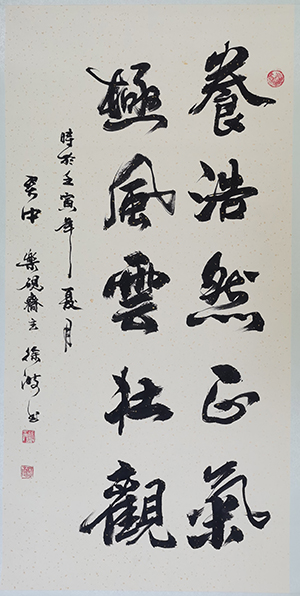 養浩然正氣
極風雲壯觀
時於壬寅年夏月
樂硯齋主徐波書